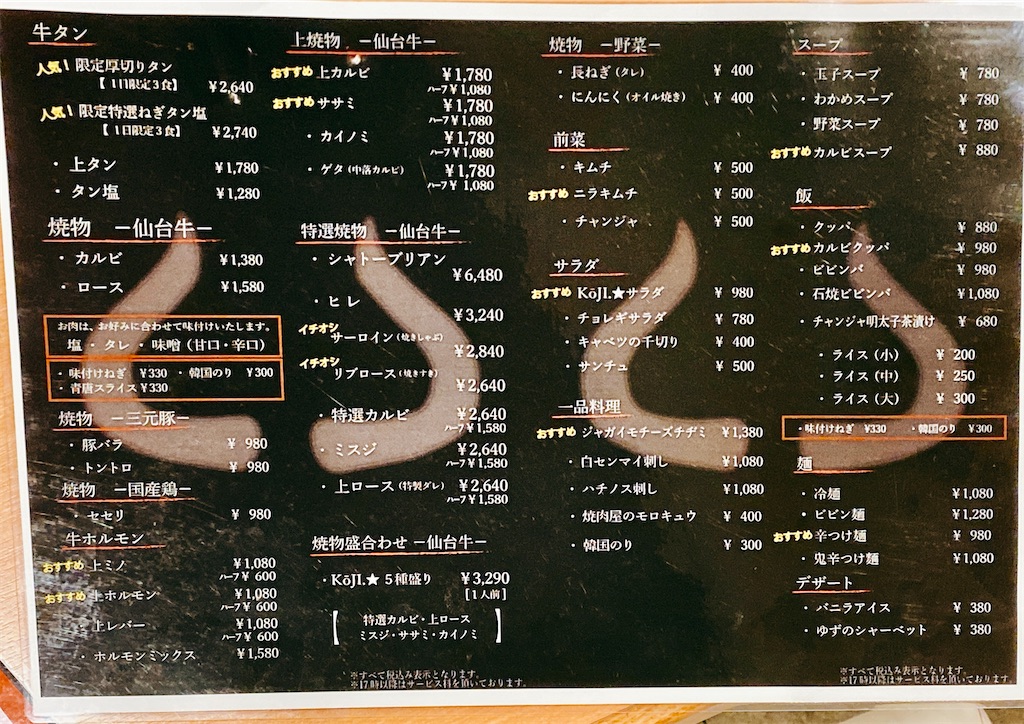 牛タン
人気！ 限定厚切りタン
【1日限定3食】 ¥2,640
人気！ 限定特選ねぎタン塩
【1日限定3食】 ¥2,740
・上タン ¥1,780
・タン塩 ¥1,280
焼物 －仙台牛－
・カルビ ¥1,380
・ロース ¥1,580
お肉は、お好みに合わせて味付けいたします。
塩・タレ・味噌（甘口・辛口）
・味付けねぎ ¥330 ・韓国のり ¥300
・青唐スライス ¥330
焼物 －三元豚－
・豚バラ ¥ 980
・トントロ ¥ 980
焼物 －国産鶏－
・セセリ ¥ 980
牛ホルモン
おすすめ 上ミノ ¥1,080
ハーフ¥ 600
おすすめ 上ホルモン ¥1,080
ハーフ¥ 600
・上レバー ¥1,080
ハーフ¥ 600
・ホルモンミックス ¥1,580
上焼物 －仙台牛－
おすすめ 上カルビ ¥1,780
ハーフ¥1,080
おすすめ ササミ ¥1,780
ハーフ¥1,080
・カイノミ ¥1,780
ハーフ¥1,080
・ゲタ（中落カルビ） ¥1,780
ハーフ¥ 1,080
特選焼物 －仙台牛－
・シャトーブリアン
¥6,480
・ヒレ
¥3,240
イチオシ サーロイン（焼きしゃぶ）
¥2,840
イチオシ リブロース（焼きすき）
¥2,640
・特選カルビ ¥2,640
ハーフ¥1,580
・ミスジ ¥2,640
ハーフ¥1,580
・上ロース（特製ダレ） ¥2,640
ハーフ¥1,580
焼物盛合わせ －仙台牛－
・KōJI.★５種盛り ¥3,290
[1人前]
【特選カルビ・上ロース
ミスジ・ササミ・カイノミ】
※すべて税込み表示となります。
※17時以降はサービス料を頂いております。
焼物 －野菜－
・長ねぎ（タレ） ¥ 400
・にんにく（オイル焼き） ¥ 400
前菜
・キムチ ¥ 500
おすすめ ニラキムチ ¥ 500
・チャンジャ ¥ 500
サラダ
おすすめ KōJI.★サラダ ¥ 980
・チョレギサラダ ¥ 780
・キャベツの千切り ¥ 400
・サンチュ ¥ 500
一品料理
おすすめ ジャガイモチーズチヂミ ¥1,380
・白センマイ刺し ¥1,080
・ハチノス刺し ¥1,080
・焼肉屋のモロキュウ ¥ 400
・韓国のり ¥ 300
スープ
・玉子スープ ¥ 780
・わかめスープ ¥ 780
・野菜スープ ¥ 780
おすすめ カルビスープ ¥ 880
飯
・クッパ ¥ 880
おすすめ カルビクッパ ¥ 980
・ビビンバ ¥ 980
・石焼ビビンバ ¥1,080
・チャンジャ明太子茶漬け ¥ 680
・ライス（小） ¥ 200
・ライス（中） ¥ 250
・ライス（大） ¥ 300
・味付けねぎ ¥330 ・韓国のり ¥300
麺
・冷麺 ¥1,080
・ビビン麺 ¥1,280
おすすめ 辛つけ麺 ¥ 980
・鬼辛つけ麺 ¥1,080
デザート
・バニラアイス ¥ 380
・ゆずのシャーベット ¥ 380
※すべて税込み表示となります。
※17時以降はサービス料を頂いております。